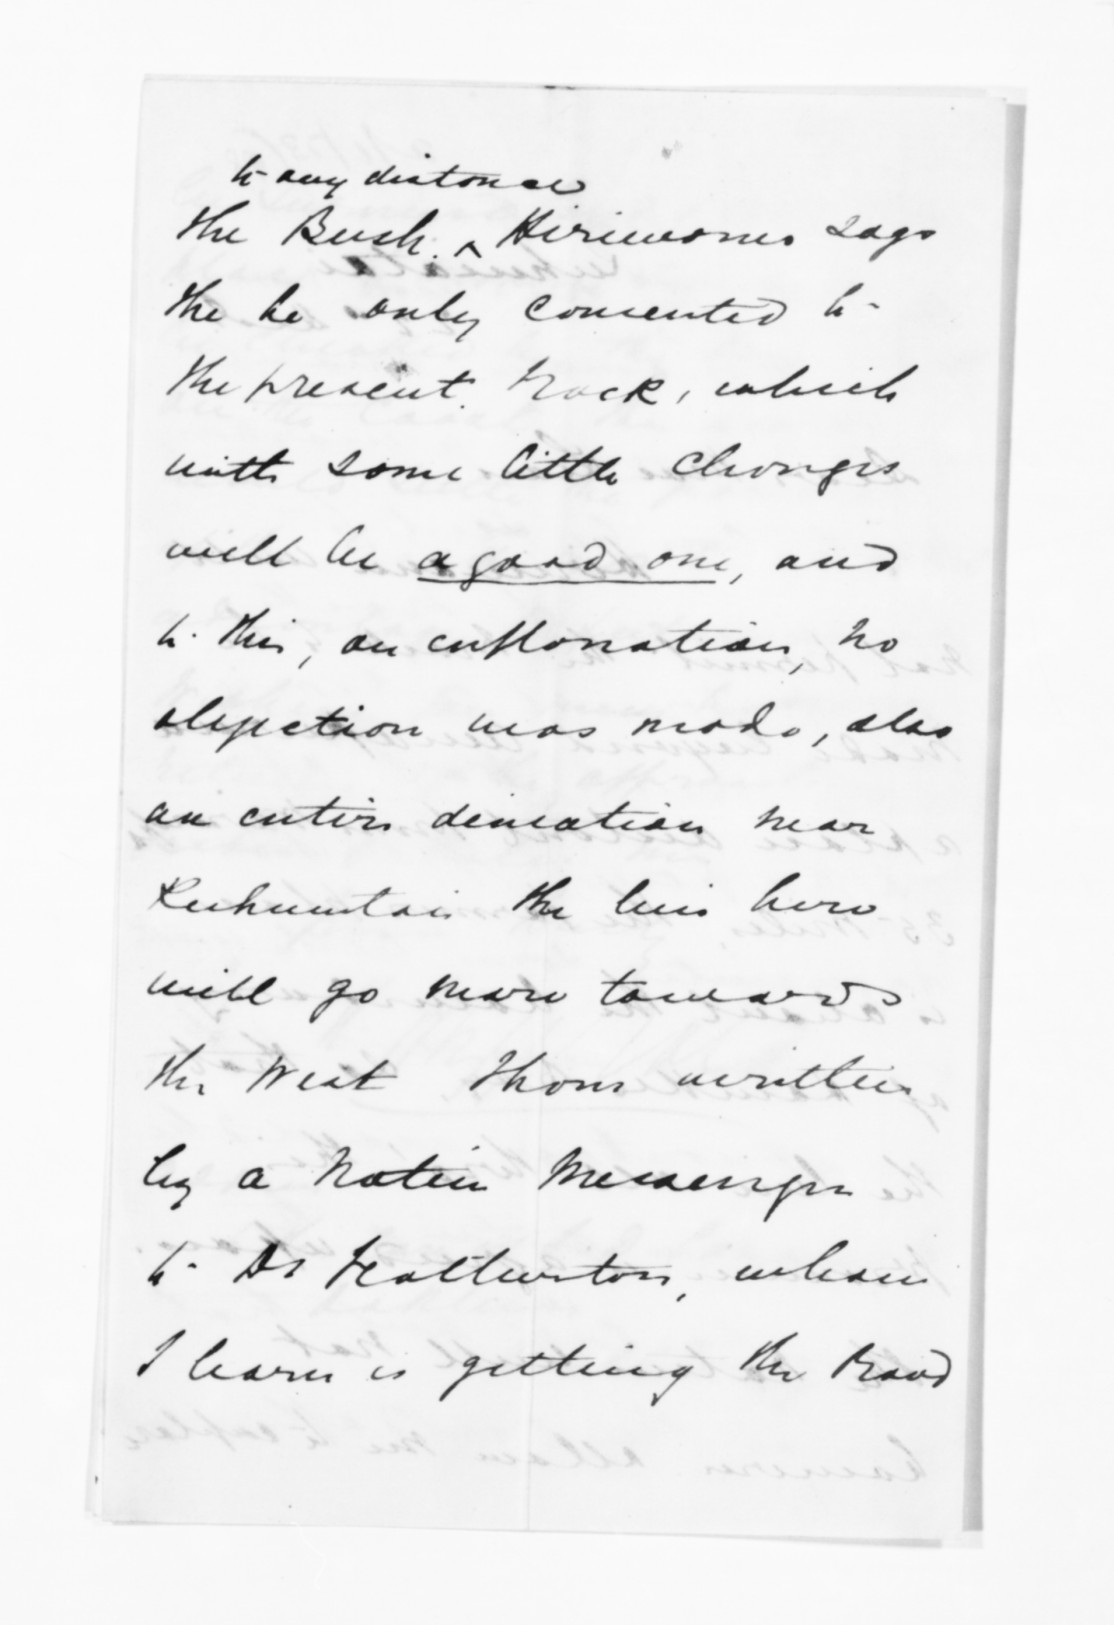 to any distance
the Bush. ^ Hiriwanu says
the he only consented to
the present track, which
with some little changes
will be a good one, and
to this, on explanation, no
objection was made, also
an entire deviation near
the line here
will go more towards
the West. I have written
by a Native Messenger
to Dr Featherston, whom
I learn is getting the Road